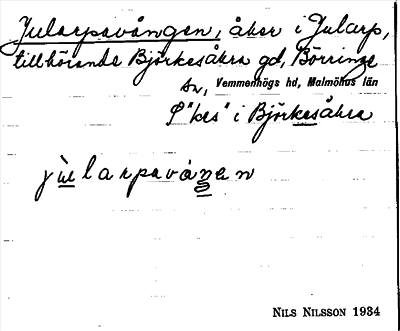 Jularpavången, åker i Jularp,
tillhörande Björkesåkra gd, Börringe
sn, Vemmenhögs hd, Malmöhus län
"kes" i Björkesåkra
jùlarpavåŋen
NILS NILSSON 1934